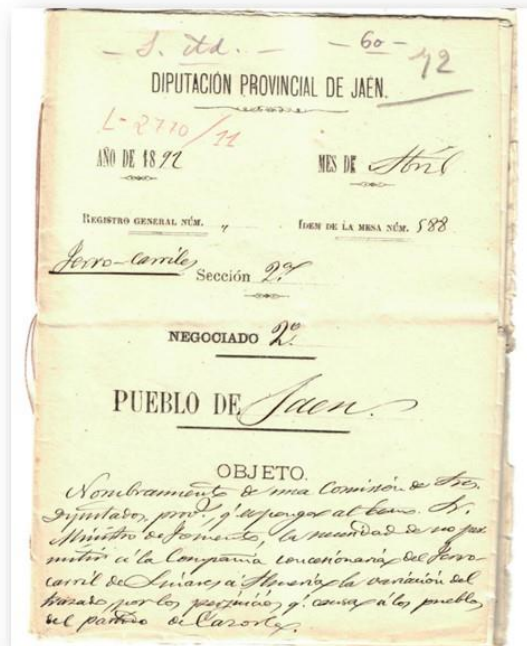 - 60 -
72
DIPUTACIÓN PROVINCIAL DE JAÉN.
L-2770/11
AÑO DE 1892 MES DE Abril
REGISTRO GENERAL NÚM. „ IDEM DE LA MESA NÚM. 588
Ferro-Carriles
Sección 2ª
NEGOCIADO 2º
PUEBLO DE Jaen.
OBJETO.
Nombramiento de una Comisión de Sres.
Diputados prov.s q.e esponga al Excmo. Sr.
Ministro de Fomento, la necesidad de no per-
mitir á la Compañia concesionaria del Ferro-
carril de Linares a Almeria la variación del
trazado, por los perjuicios q.e causa á los pueblos
del partido de Cazorla.